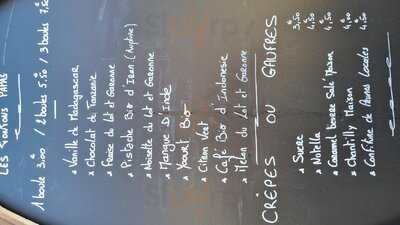 LES TONTONS PAPAS
1 boule 3.00€ / 2 boules 5.50€ / 3 boules 7.50€
* Vanille de Madagascar
* Chocolat de Tanzanie
* Fraise du Lot et Garonne
* Pistache Bio d'Iran
* Noisette du Lot et Garonne
* Mangue D'Inde
* Yaourt Bio
* Citron Vert
* Café Bio d'Indonesie
* Melon du Lot et Garonne
CRÊPES OU GAUFRES
* Sucre 3,50€
* Nutella 4,50€
* Caramel beurre Salé Maison 4,50€
* Chantilly Maison 4,50€
* Confiture de Prunes Locales 4,50€